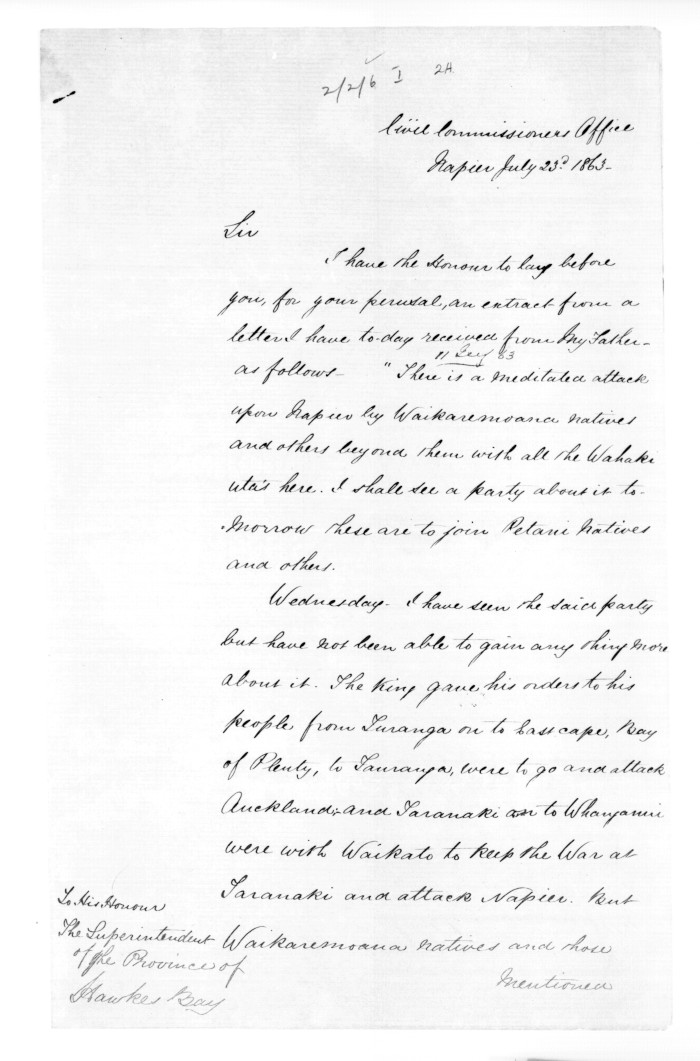 2/2/6 I 2A
Civil Commissioners Office
Napier July 23d 1863-
Sir
I have the Honour to lay before
you, for your perusal, an extract from a
letter I have to-day received from My Father-
as follows- "There is a meditated attack
upon Napier by Waikaremoana Natives
and others beyond them with all the Wahaki
uta's here. I shall see a party about it to-
-morrow these are to join Petani Natives
and others.
Wednesday- I have seen the said party
but have not been able to gain any thing More
about it. The King gave his orders to his
people from Turanga on to East cape, Bay
of Plenty, to Tauranga, were to go and attack
Auckland;- and Taranaki on to Whanganui
were with Waikato to keep the War at
Taranaki and attack Napier. But
Waikaremoana natives and those
Mentioned
To His Honour
The Superintendent
of the Province of
Hawkes Bay